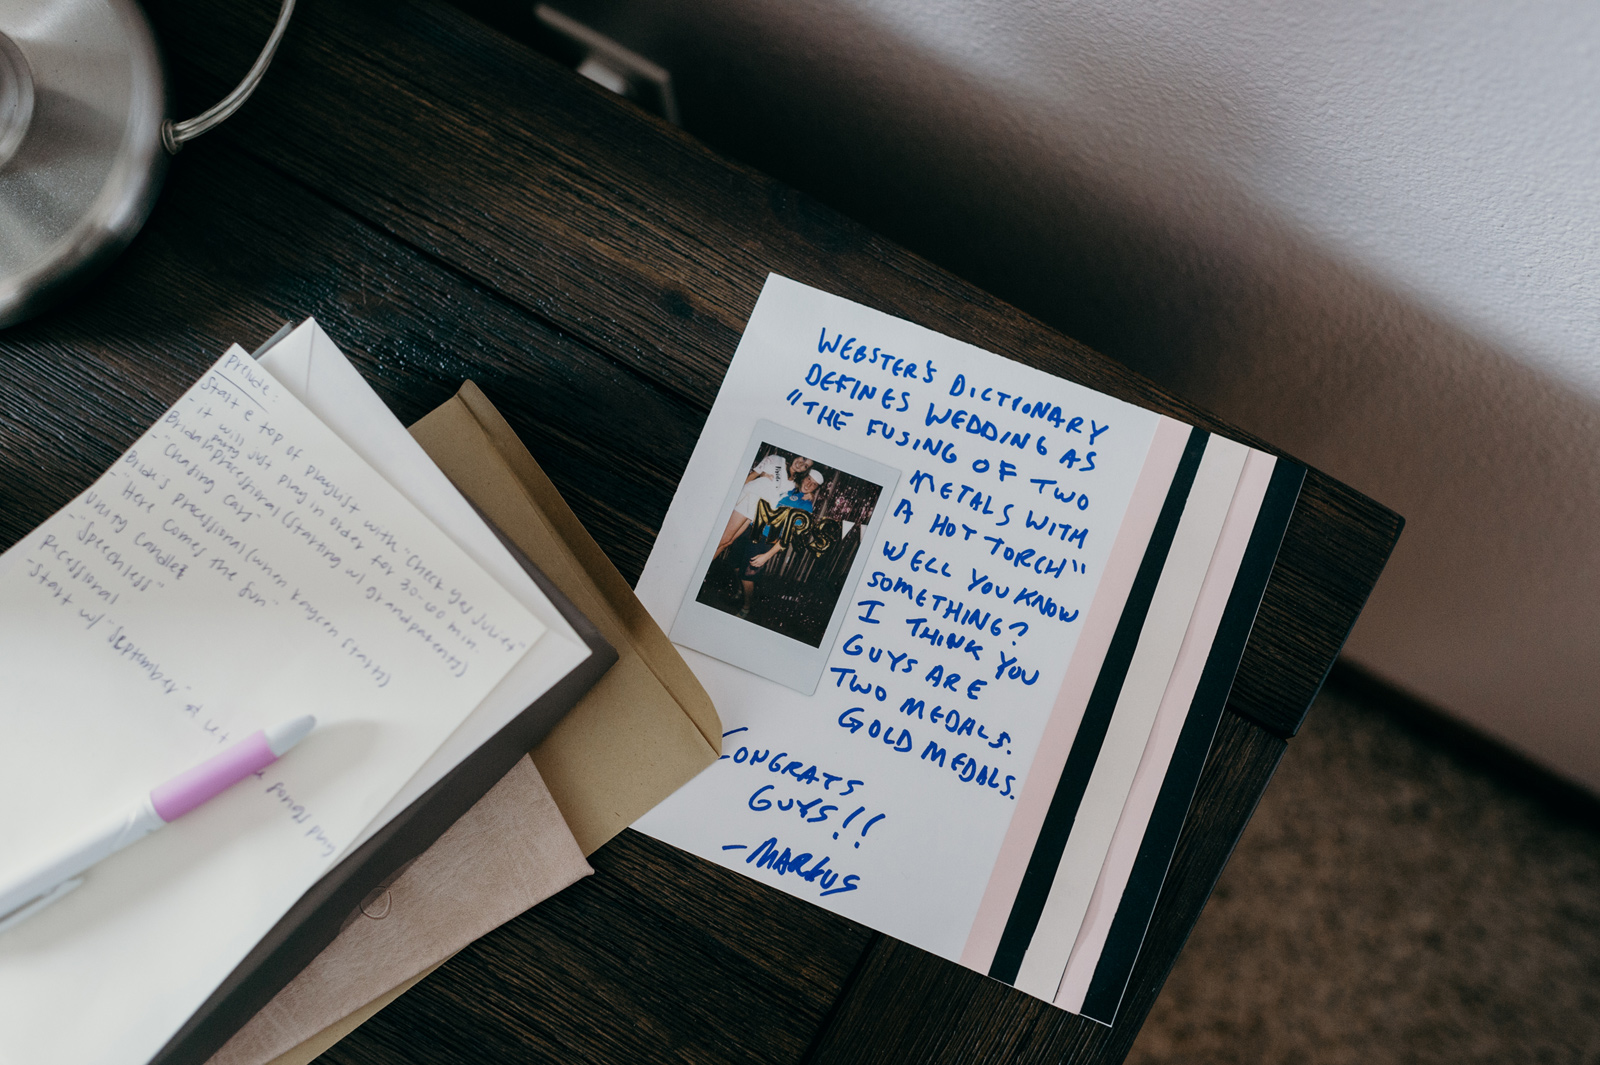 prelude:
Start @ top of playlist with "Check yes Juliet"
- it will just play in order for 30-40 min.
Bridal party processional (starting w/ grandparents)
- "Chasing Cars"
Bride's processional (when Kaycen starts)
- "Here comes the sun"
Unity Candle:
- "Speechless"
Recessional
- Start w/ "September" + let
songs play
WEBSTER'S DICTIONARY
DEFINES WEDDING AS
"THE FUSING OF TWO
METALS WITH
A HOT TORCH"
WELL YOU KNOW
SOMETHING?
I THINK YOU
GUYS ARE
TWO MEDALS.
GOLD MEDALS.
CONGRATS
GUYS!!
-MARKUS
MRS